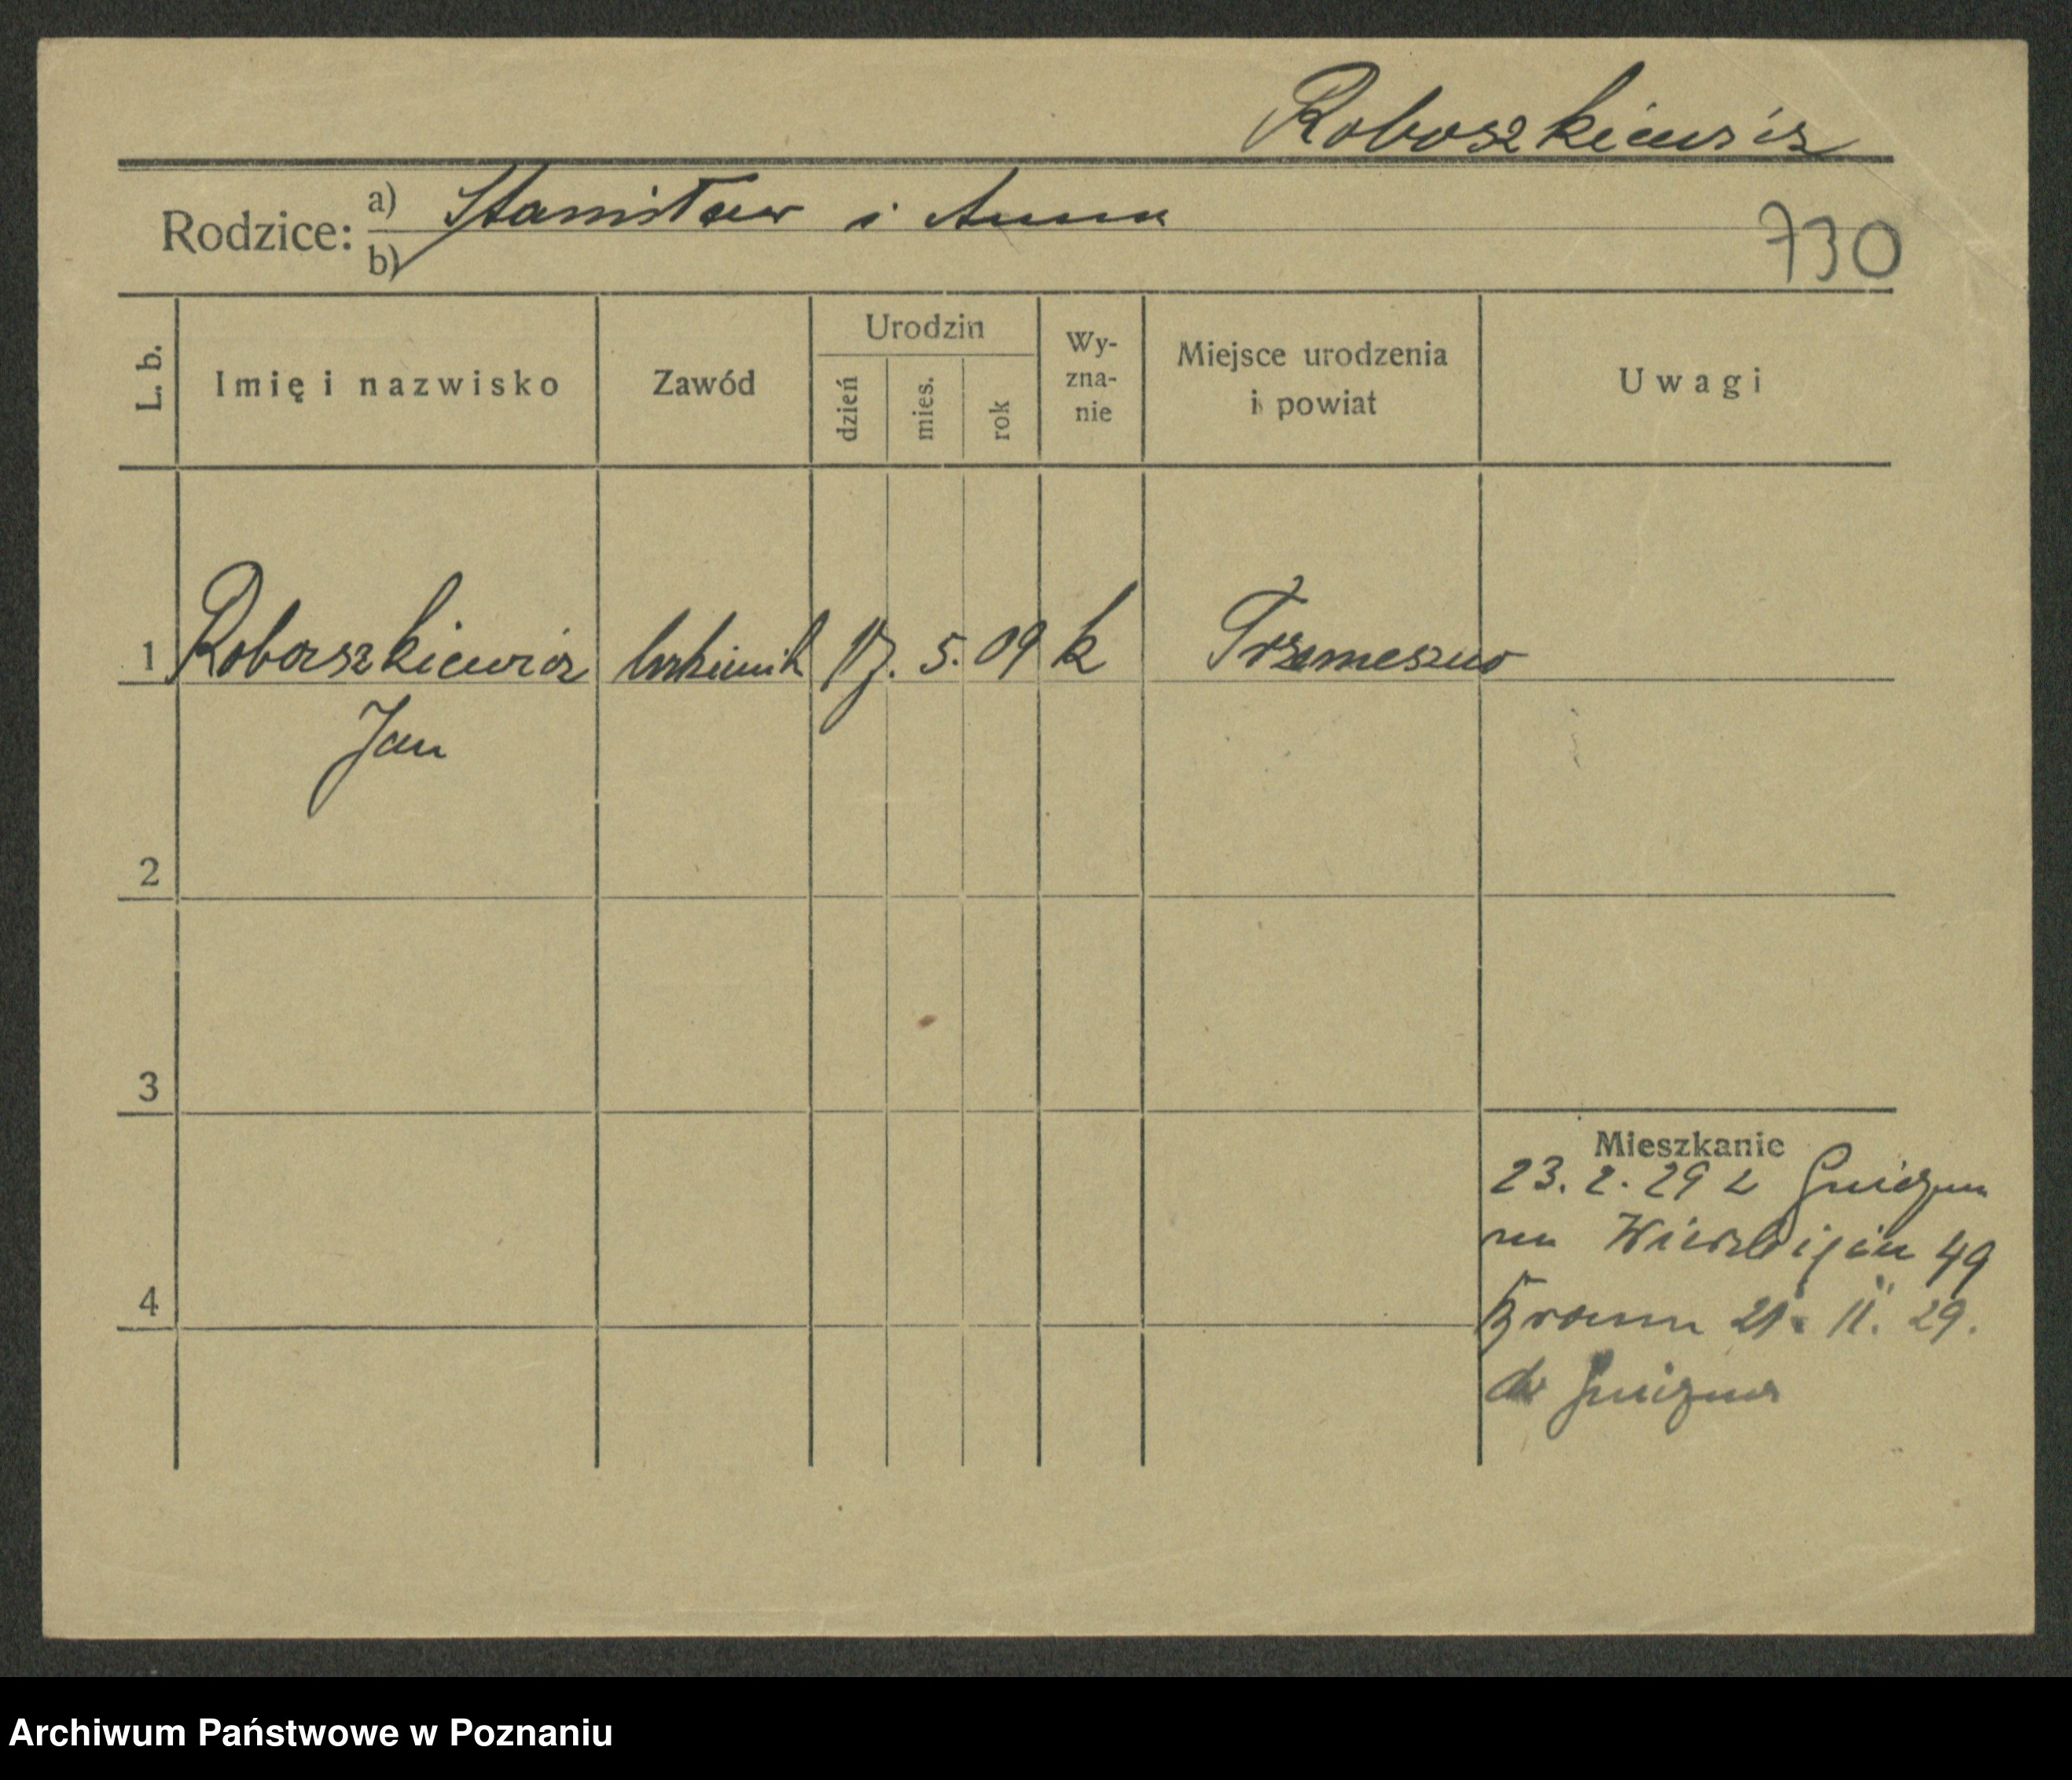 Roboszkiewicz
Rodzice: a) Stanisław i Anna
b)
730
L. b. Imię i nazwisko Zawód Urodzin dzień mies. rok Wy-zna-nie Miejsce urodzenia i powiat Uwagi
1 Roboszkiewicz 17. 5. 09 k Trzemeszno
Jan
2
3
Mieszkanie
23. 2. 29 z Gniezna
49
4
21. 11. 29.
do Gniezna
Archiwum Państwowe w Poznaniu